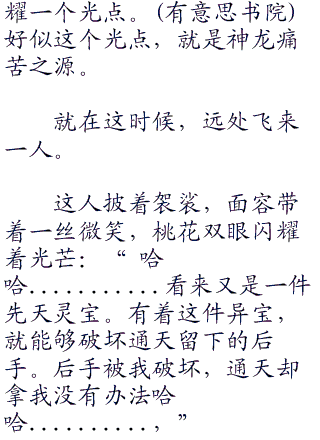 耀一个光点。(有意思书院)
好似这个光点，就是神龙痛
苦之源。
就在这时候，远处飞来
一人。
这人披着袈裟，面容带
着一丝微笑，桃花双眼闪耀
着光芒：“哈
哈...........看来又是一件
先天灵宝。有着这件异宝，
就能够破坏通天留下的后
手。后手被我破坏，通天却
拿我没有办法哈
哈..........，”